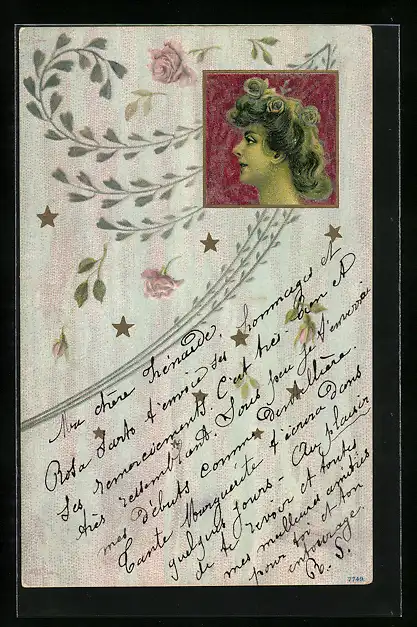 Ma chère Renarde,
Rosa Sarto t'envoie ses hommages et
ses remerciements. C'est très bien et
très ressemblant. Sous peu je t'enverrai
mes débuts comme Dentellière
Tante Marguerite t'écrira dans
quelques jours - Au plaisir
de te revoir et toutes
mes meilleures amitiés
pour toi et ton
entourage.
R. S.
7749